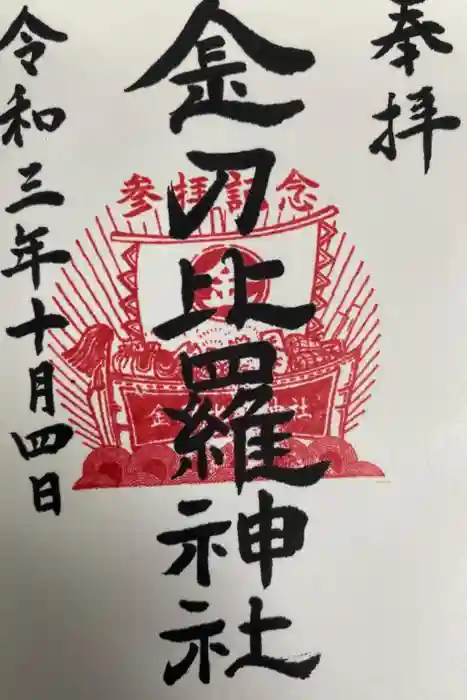 奉拝
参拝記念
金
金刀比羅神社
令和三年十月四日